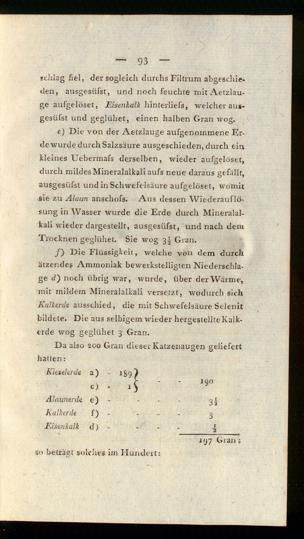 — 93 —
schlag fiel, der sogleich durchs Filtrum abgeschie-
den, ausgesüfst, und noch feuchte mit Aetzlau-
ge aufgelöset, Eisenkalk hinterliefs, welcher aus-
gesüfst und geglühet, einen halben Gran wog.
e) Die von der Aetzlauge aufgenommene Er-
de wurde durch Salzsäure ausgeschieden, durch ein
kleines Uebermafs derselben, wieder aufgelöset,
durch mildes Mineralalkali aufs neue daraus gefällt,
ausgesüfst und in Schwefelsäure aufgelöset, womit
sie zu Alaun anschofs. Aus dessen Wiederauflö-
sung in Wasser wurde die Erde durch Mineralal-
kali wieder dargestellt, ausgesüfst, und nach dem
Trocknen geglühet. Sie wog 3½ Gran.
f) Die Flüssigkeit, welche von dem durch
ätzendes Ammoniak bewerkstelligten Niederschla-
ge d) noch übrig war, wurde, über der Wärme,
mit mildem Mineralalkali versetzt, wodurch sich
Kalkerde ausschied, die mit Schwefelsäure Selenit
bildete. Die aus selbigem wieder hergestellte Kalk-
erde wog geglühet 3 Gran.
Da also 200 Gran dieser Katzenaugen geliefert
hatten:
Kieselerde a) - 189 }
c) - 1 } - - 190
Alaunerde e) - - - 3½
Kalkerde f) - - - 3
Eisenkalk d) - - - ½
197 Gran;
so beträgt solches im Hundert: